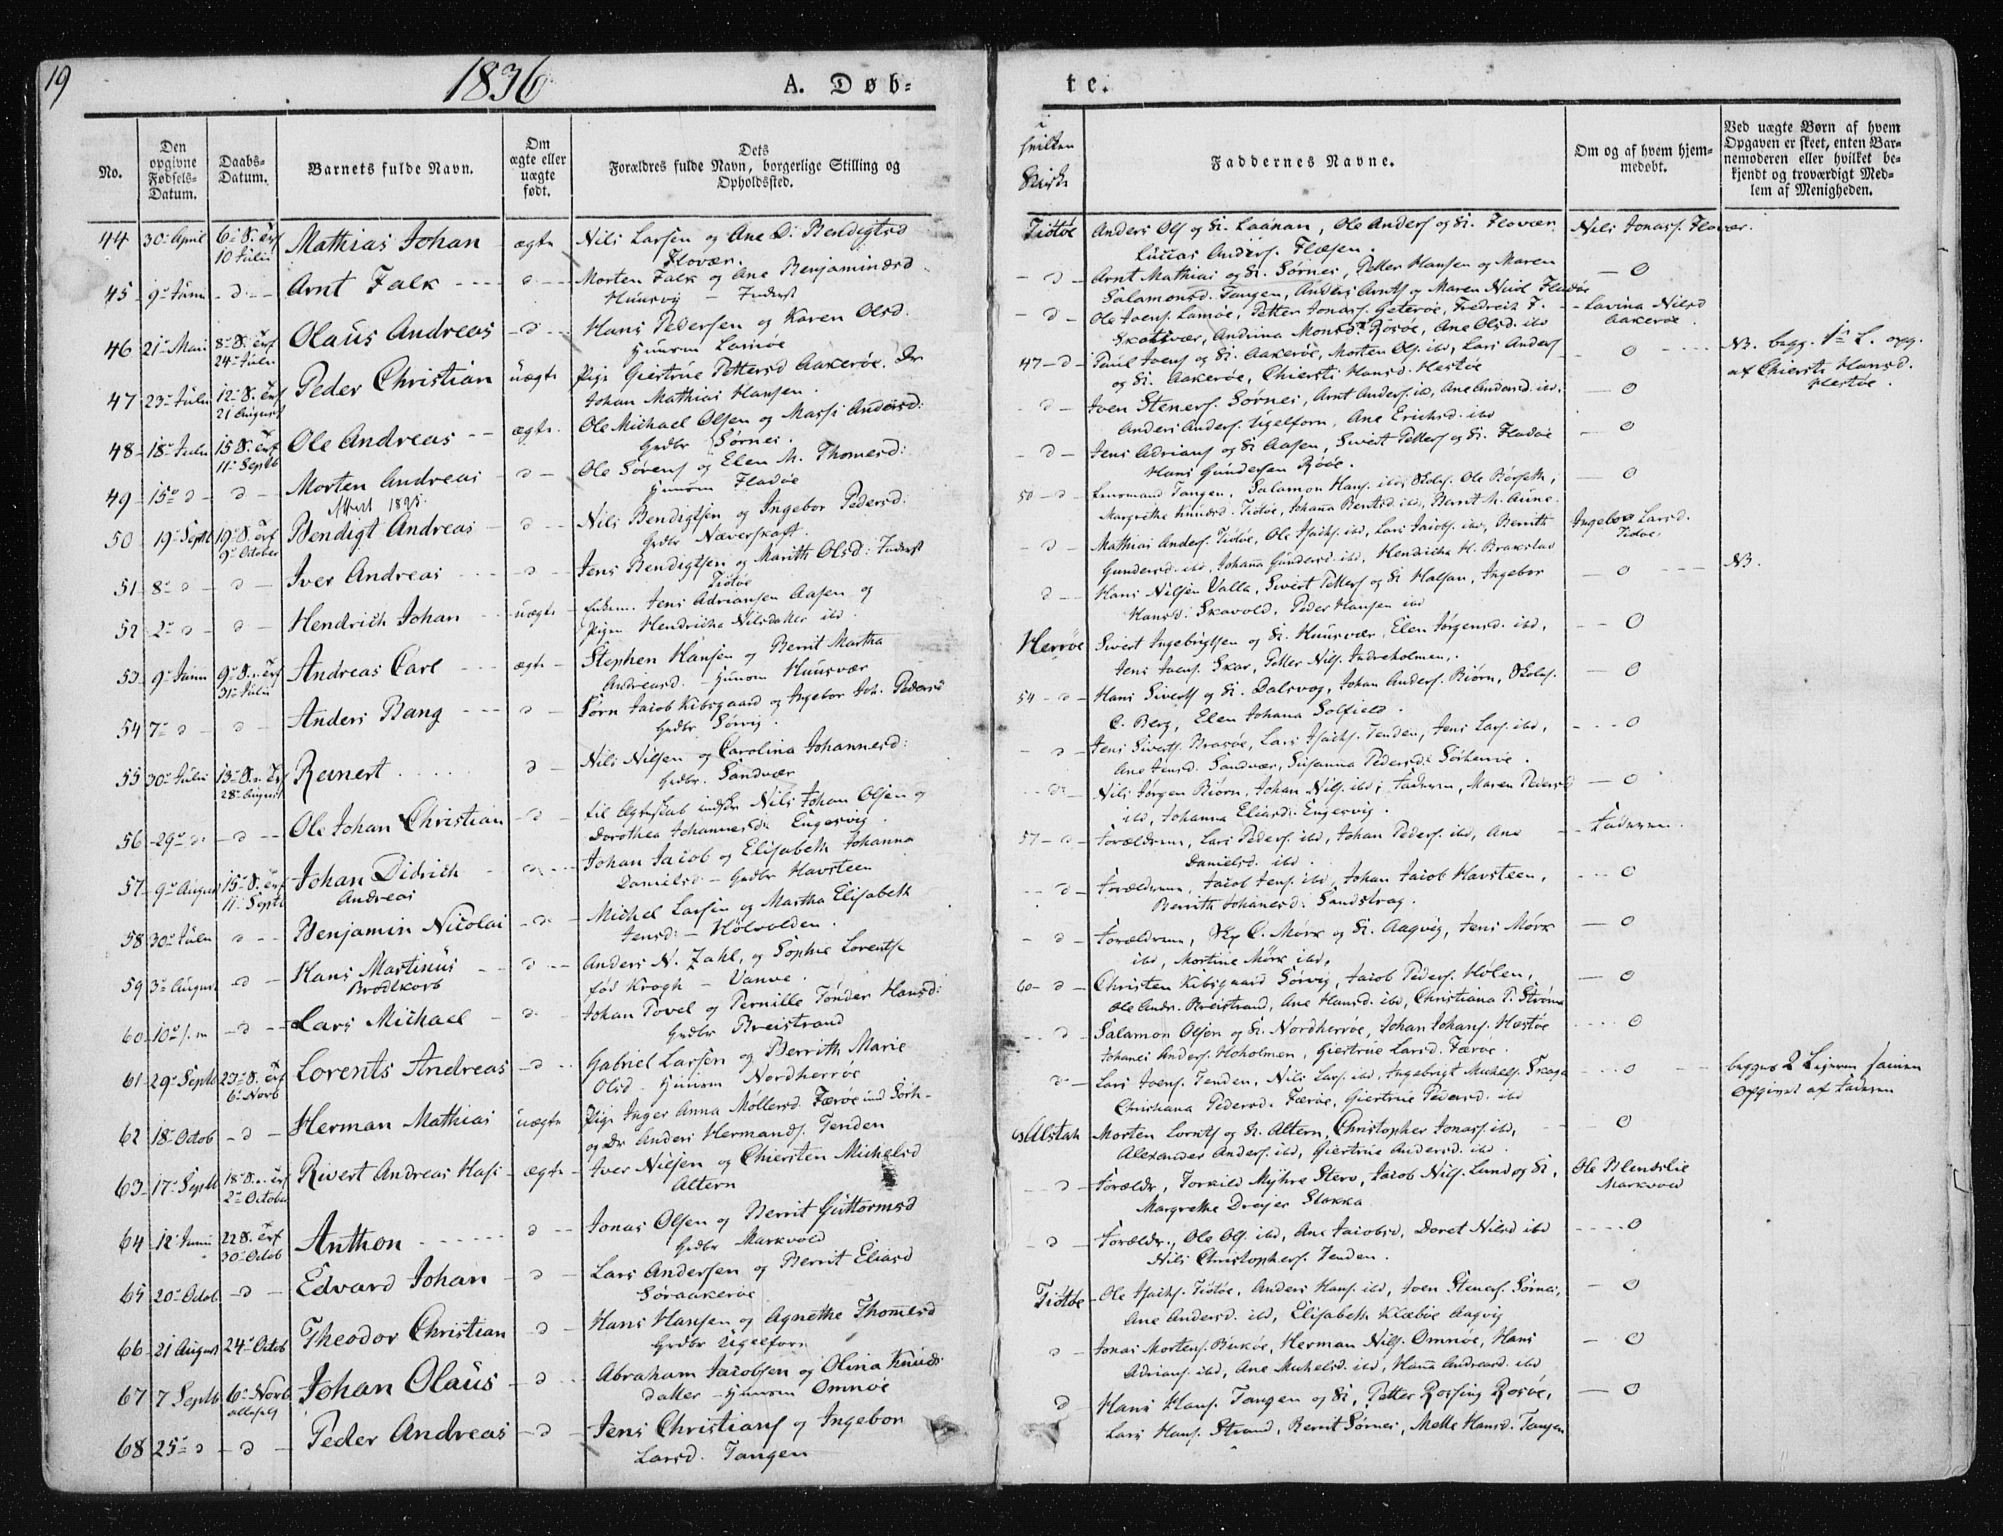 19
1836
A. Døb-
te.
No.
Den opgivne Fødsels-Datum.
Daabs-Datum.
Barnets fulde Navn.
Om ægte eller uægte født.
Dets Forældres fulde Navn, borgerlige Stilling og Opholdsted.
i hvilken Kirke
Faddernes Navne.
Om og af hvem hjemmedøbt.
Ved uægte Børn af hvem Opgaven er skeet, enten Barnemoderen eller hvilket bekjendt og troværdigt Medlem af Menigheden.
44 30 April 10 Julii Mathias Johan ægte Nils Larsen og Ane D. Bendigtsd
Flovær.
Tiøtøe Anders Ols og K. Laanan, Ole Anders og K. Flovær
Luccas Anders. Flesen.
Nils Jonas. Flovær.
45 9 Junii Arnt Falk Morten Falk og Ane Benjaminsd
Huusvig
Arnt Mathias og K. Sørnes, Petter Hansen og Maren
Salamonsd. Tangen, Anders Arnts og Maren
46 21 Mai 24 Julii Olaus Andreas Hans Pedersen og Karen Olsd.
Huusm Lamøe
Ole Joens. Lamøe, Petter Jonas. Geterøe, Fredrich
Skotsvær, Andrina Monsd. Rosøe, Ane Olsd. ibd
Lavina Nilsd
Aakerøe
47 23 Julii 21 August Peder Christian uægte Pige Giertrue Pettersd Aakerøe. Dr
Johan Mathias Hansen
47 Paul Joens og K. Aakerøe, Morten Ols. ibd, Lars Anders
og K. Aakerøe, Chiersti Hansd. Hestøe
af Chiersti Hansd.
Hestøe.
48 18 Julii 11 Septb Ole Andreas ægte Ole Michael Olsen og Massi Andersd:
Grdbr Sørnes.
Joen Steners. Sørnes, Arnt Anders. ib, Ane Andersd. ib.
Anders Anders. Ugelforn, Ane Erichsd. ibd
49 15 Morten Andreas Ole Sørens og Elen M. Thomesd:
Huusm Fladøe
Jens Adrians og K. Aasen, Sivert Petters og K. Fladøe
Hans Gundersen Røøe.
50 19 Septb 9 October Bendigt Andreas Nils Bendigtsen og Ingebor Pedersd:
Grdbr Næverskaft.
50 Lensmand Tangen, Salamon Hans. ibd, Skols. Ole
Margrethe Knudsd. Tiøtøe, Johana Berntsd. ibd, Bernt M. Aune
51 8 Iver Andreas Jens Bendigtsen og Marith Olsd:
Tiøtøe
Mathias Anders. Tiøtøe, Ole Isachs. ibd, Lars Jacobs. ibd, Berrith
Gundersd. ibd, Johana Gundersd. ibd, Hendricha H.
Ingebor Larsd.
Tiøtøe
52 2 Hendrich Johan uægte Jens Adriansen Aasen og
Pigen Hendricha Nilsdatter ibd.
Hans Nilsen Valla, Sivert Petters og K. Halsan, Ingebor
Hansd. Skavold, Peder Hansen ibd
NB.
53 9 Junii 31 Julii Andreas Carl ægte Stephen Hansen og Berrit Martha
Andreasd. Huusm Huusvær
Herrøe Sivert Ingebrigtsen og K. Huusvær, Elen Jørgensd. ibd,
Jens Joens. Skar, Petter Nils. Indreholmen.
54 7 Anders Bang Sørn Jacob Kibsgaard og Ingebor Joh. Pedersd
Grdbr Sørvig.
54 Hans Siverts og K. Dalsvog, Johan Anders. Biørn, Skols.
C. Berg, Elen Johana Solfield.
55 30 Julii 28 August Reinert Nils Nilsen og Carolina Johannesd:
Grdbr. Sandvær
Jens Siverts. Brasøe, Lars Isachs. Tenden, Jens Lars. ibd,
Ane Jensd. Sandvær, Susanna Pedersd: Sørherrøe.
56 29 Ole Johan Christian Nils Johan Olsen og
Dorothea Johannesd: Engesvig
Nils Jørgen Biørn, Johan Nils. ibd, Faderen, Maren Pedersd
ibd, Johanna Eliasd: Engesvig.
57 9 August 11 Septb Johan Didrich
Andreas
Johan Jacob og Elisabeth Johanna
Danielsd Grdbr Havsteen
57 Forældrene, Lars Peders. ibd, Johan Peders. ibd, Ane
Danielsd. ibd.
Faderen
58 30 Julii Benjamin Nicolai Michel Larsen og Martha Elisabeth
Jensd: Holvolden.
Forældrene, Jacob Jens. ibd, Johan Jacob Havsteen,
Berrith Johanesd: Sandstrag.
59 3 August Hans Martinus
Brodtkorb
Anders N. Zahl, og Sophie Lorentse
fød Krogh Vanve.
Forældrene, C. Mørk og K. Aagvig, Jens Mørk
ibd, Mortine Mørk ibd,
60 10 Lars Michael Johan Povel og Pernille Tønder Hansd:
Grdbr Breistrand
60 Christen Kibsgaard Sørvig, Jacob Peders. Hølen,
Ole Andr. Breistrand, Ane Hansd. ibd, Christiana P. Strøm
61 29 Septb 6 Novb Lorents Andreas Gabriel Larsen og Berrith Marie
Olsd. Huusm Nordherrøe
Salamon Olsen og K. Nordherrøe, Johan Johans. Hestøe
Johanes Anders. Hoholmen, Giertrue Larsd. Færøe.
62 18 Octob Herman Mathias uægte Pige Inger Anna Mollersd. Færøe
og Dr Anders Hermands. Tenden
Lars Joens. Tenden, Nils Lars. ibd, Ingebrigt Michels. Skaga
Christiana Pedersd. Færøe, Giertrue Pedersd. ibd
begges 2
opgivet af Faderen
63 17 Septb 2 October Rivert Andreas ægte Iver Nilsen og Chiersten Michelsd
Altern
Alstah Morten Lornts og K. Altern, Christopher Jonas. ibd,
Alexander Anders. ibd, Giertrue Andersd. ibd.
64 12 Junii 30 Octob Anthon Jonas Olsen og Berrit Guttormsd
Grdbr Markvold
Forældr., Torkild Myhre Stero, Jacob Nils. Lund og K.,
Margrethe Dreyer Stokka
Markvold
65 20 Octob Edvard Johan Lars Andersen og Berrit Eliasd
Søraakerøe
Forældr., Ole Ols. ibd, Ane Jacobsd, Doret Nilsd ibd
Nils Christophers. Tenden.
66 21 August 24 Octob Theodor Christian Hans Hansen og Agnethe Thomesd
Grdbr Ugelforn
Tiøtøe Ole Isachs. Tiøtøe, Anders Hans. ibd, Joen Steners. Sørnes,
Ane Andersd. ibd, Elisabeth Klæboe Aagvig
67 7 Septb 6 Novb Johan Olaus Abraham Jacobsen og Olina Knuds
datter Huusm Omnøe
Jonas Mortens. Bukøe, Herman Nils. Omnøe, Hans
Adrians. ibd, Ane Michelsd. ibd, Hana Andreasd. ibd
68 25 Peder Andreas Jens Christians og Ingebor
Larsd. Tangen
Hans Hans. Tangen og K., Petter Rossing Rosøe,
Lars Hans. Strand, Berrit Sørnes, Mette Hansd. Tangen